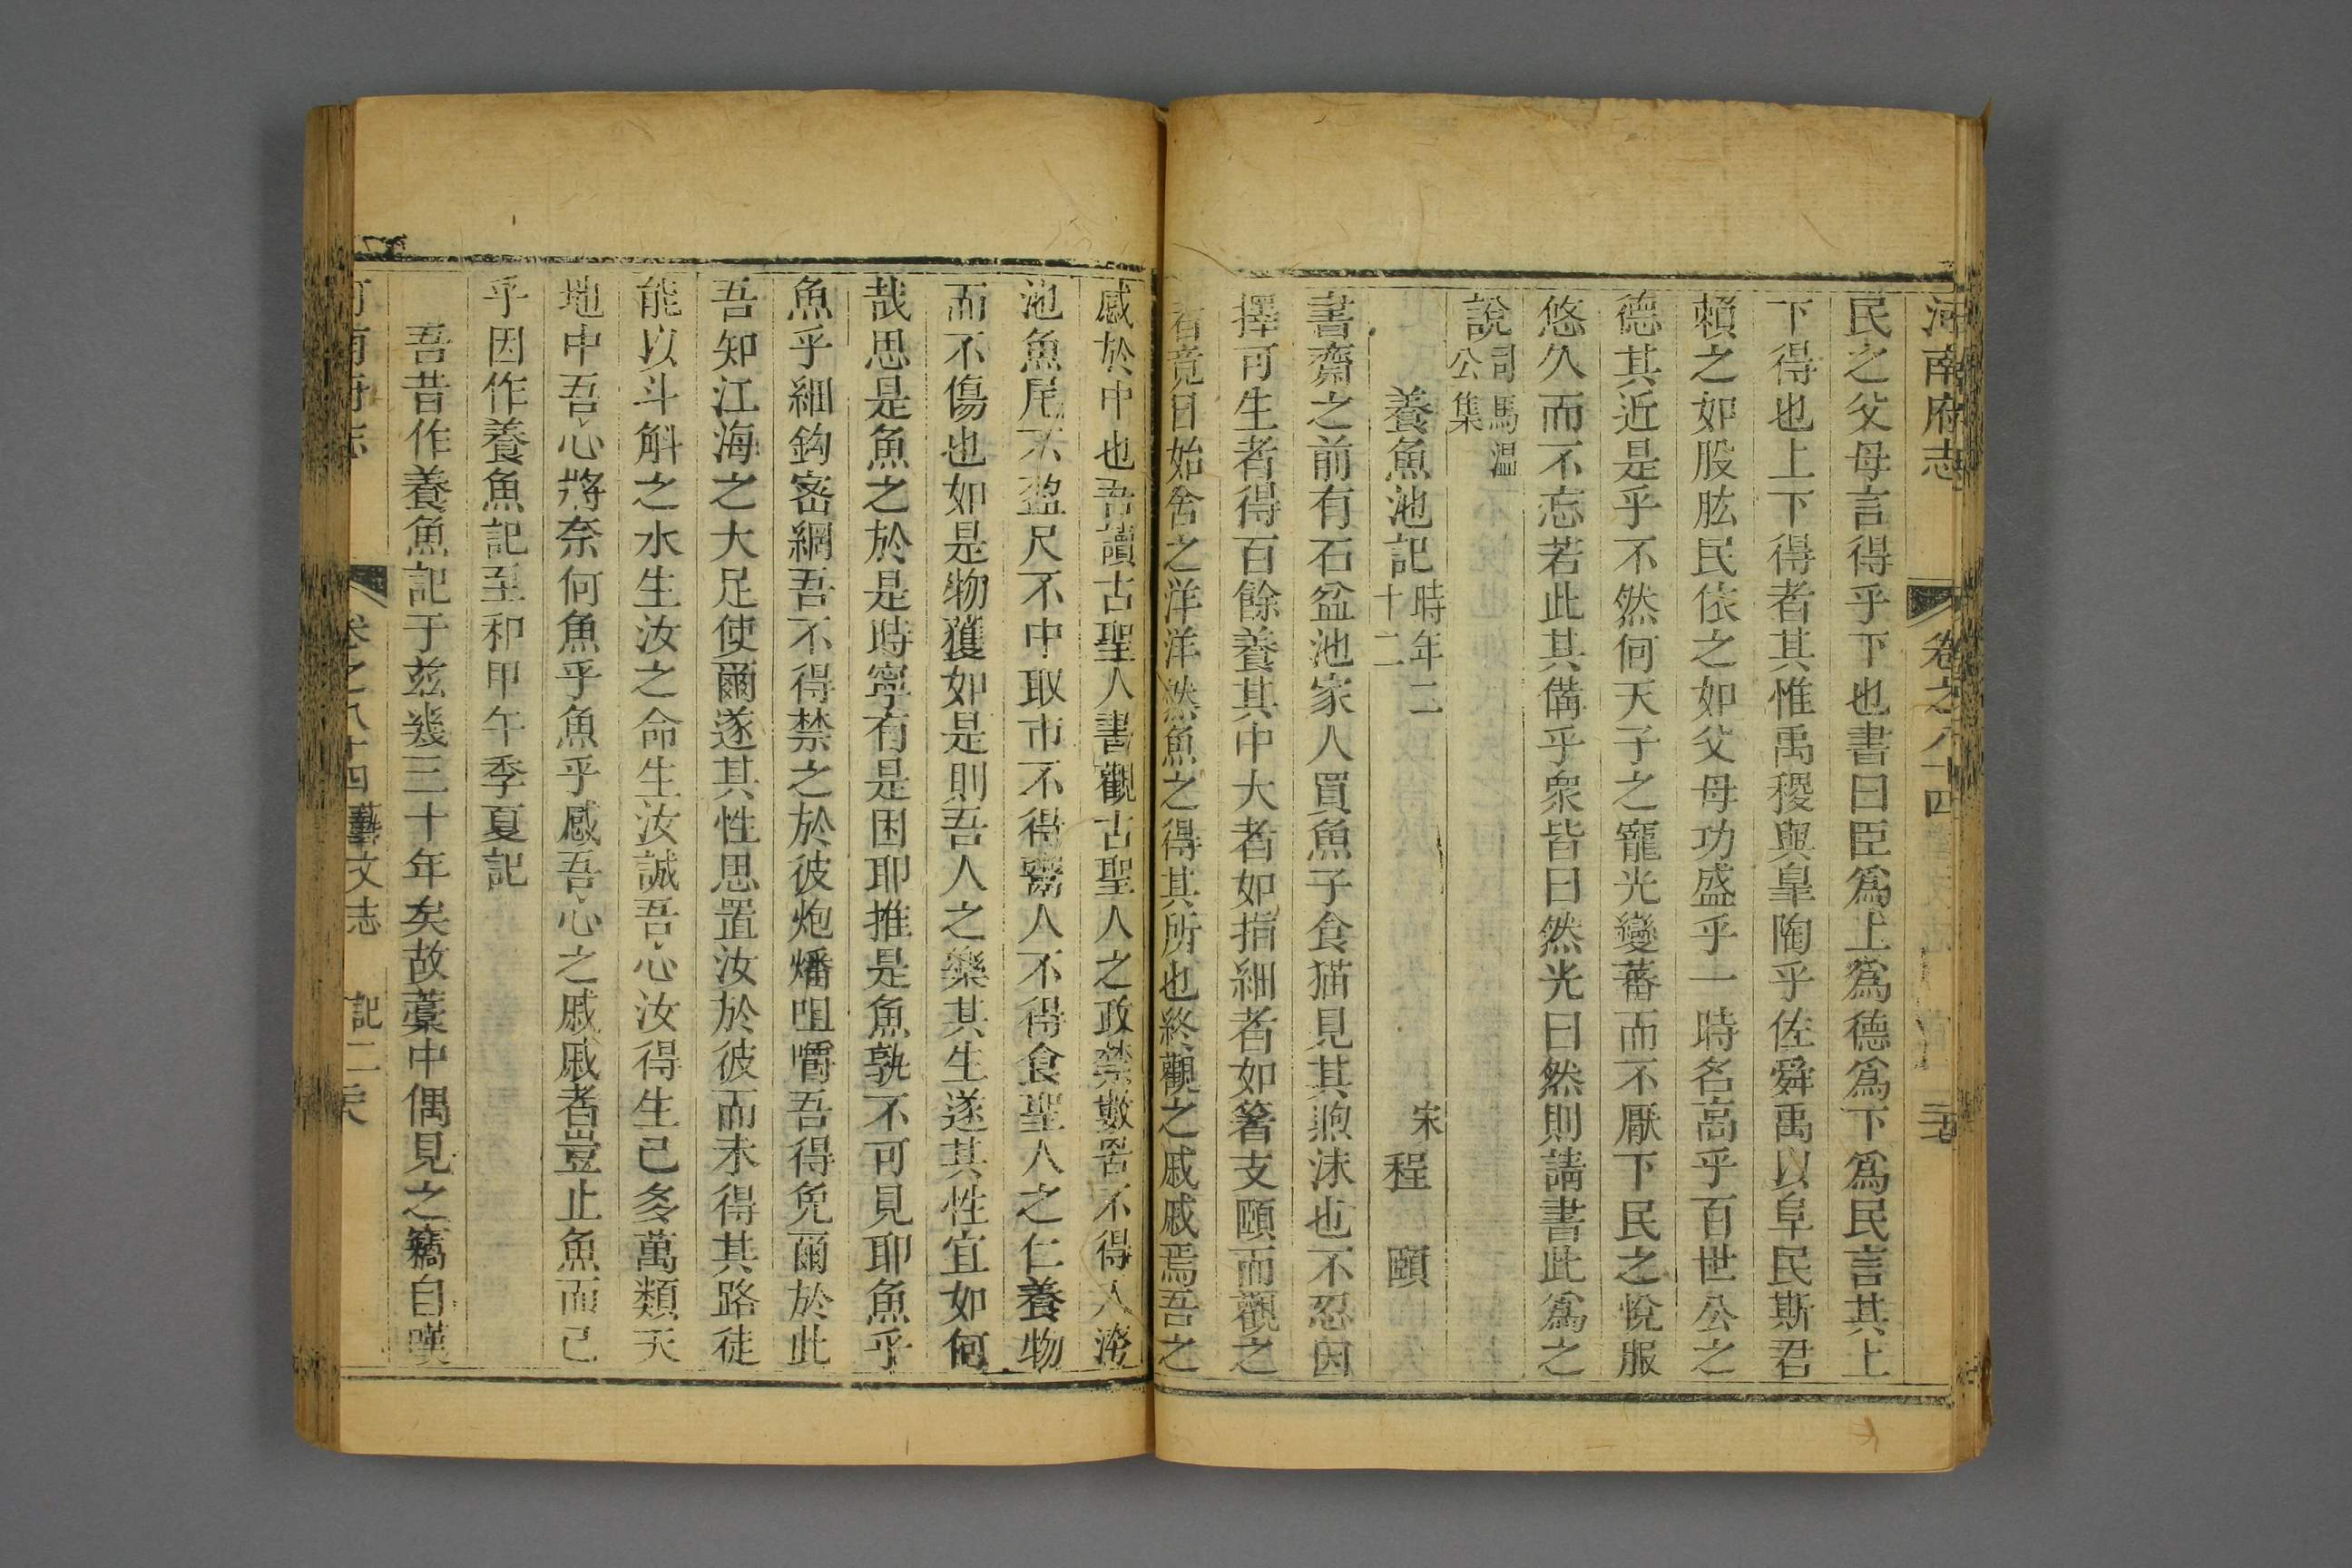 河南府志 卷之八十四
民之父母言得乎下也書曰臣爲上爲德爲下爲民言其上
下得也上下得者其惟禹稷與皐陶乎佐舜禹以阜民斯君
賴之如股肱民依之如父母功盛乎一時名高乎百世公之
德其近是乎不然何天子之寵光變蕃而不厭下民之悅服
悠久而不忘若此其備乎衆皆曰然光曰然則請書此爲之
說司馬溫公集
養魚池記時年二十二 宋程頤
書齋之前有石盆池家人買魚子食猫見其煦沫也不忍因
擇可生者得百餘養其中大者如指細者如箸支頤而觀之
者竟日始舍之洋洋然魚之得其所也終觀之戚戚焉吾之
感於中也吾讀古聖人書觀古聖人之政禁數罟不得入洿
池魚尾不盈尺不中取市不得鬻人不得食聖人之仁養物
而不傷也如是物獲如是則吾人之樂其生遂其性宜如何
哉思是魚之於是時寧有是困耶推是魚孰不可見耶魚乎
魚乎細鈎密網吾不得禁之於彼炮燔咀嚼吾得免爾於此
吾知江海之大足使爾遂其性思置汝於彼而未得其路徒
能以斗斛之水生汝之命生汝誠吾心汝得生已多萬類天
地中吾心將奈何魚乎魚乎感吾心之戚戚者豈止魚而已
乎因作養魚記至和甲午季夏記
吾昔作養魚記于玆幾三十年矣故藁中偶見之竊自嘆
河南府志 卷之八十四藝文志 記二